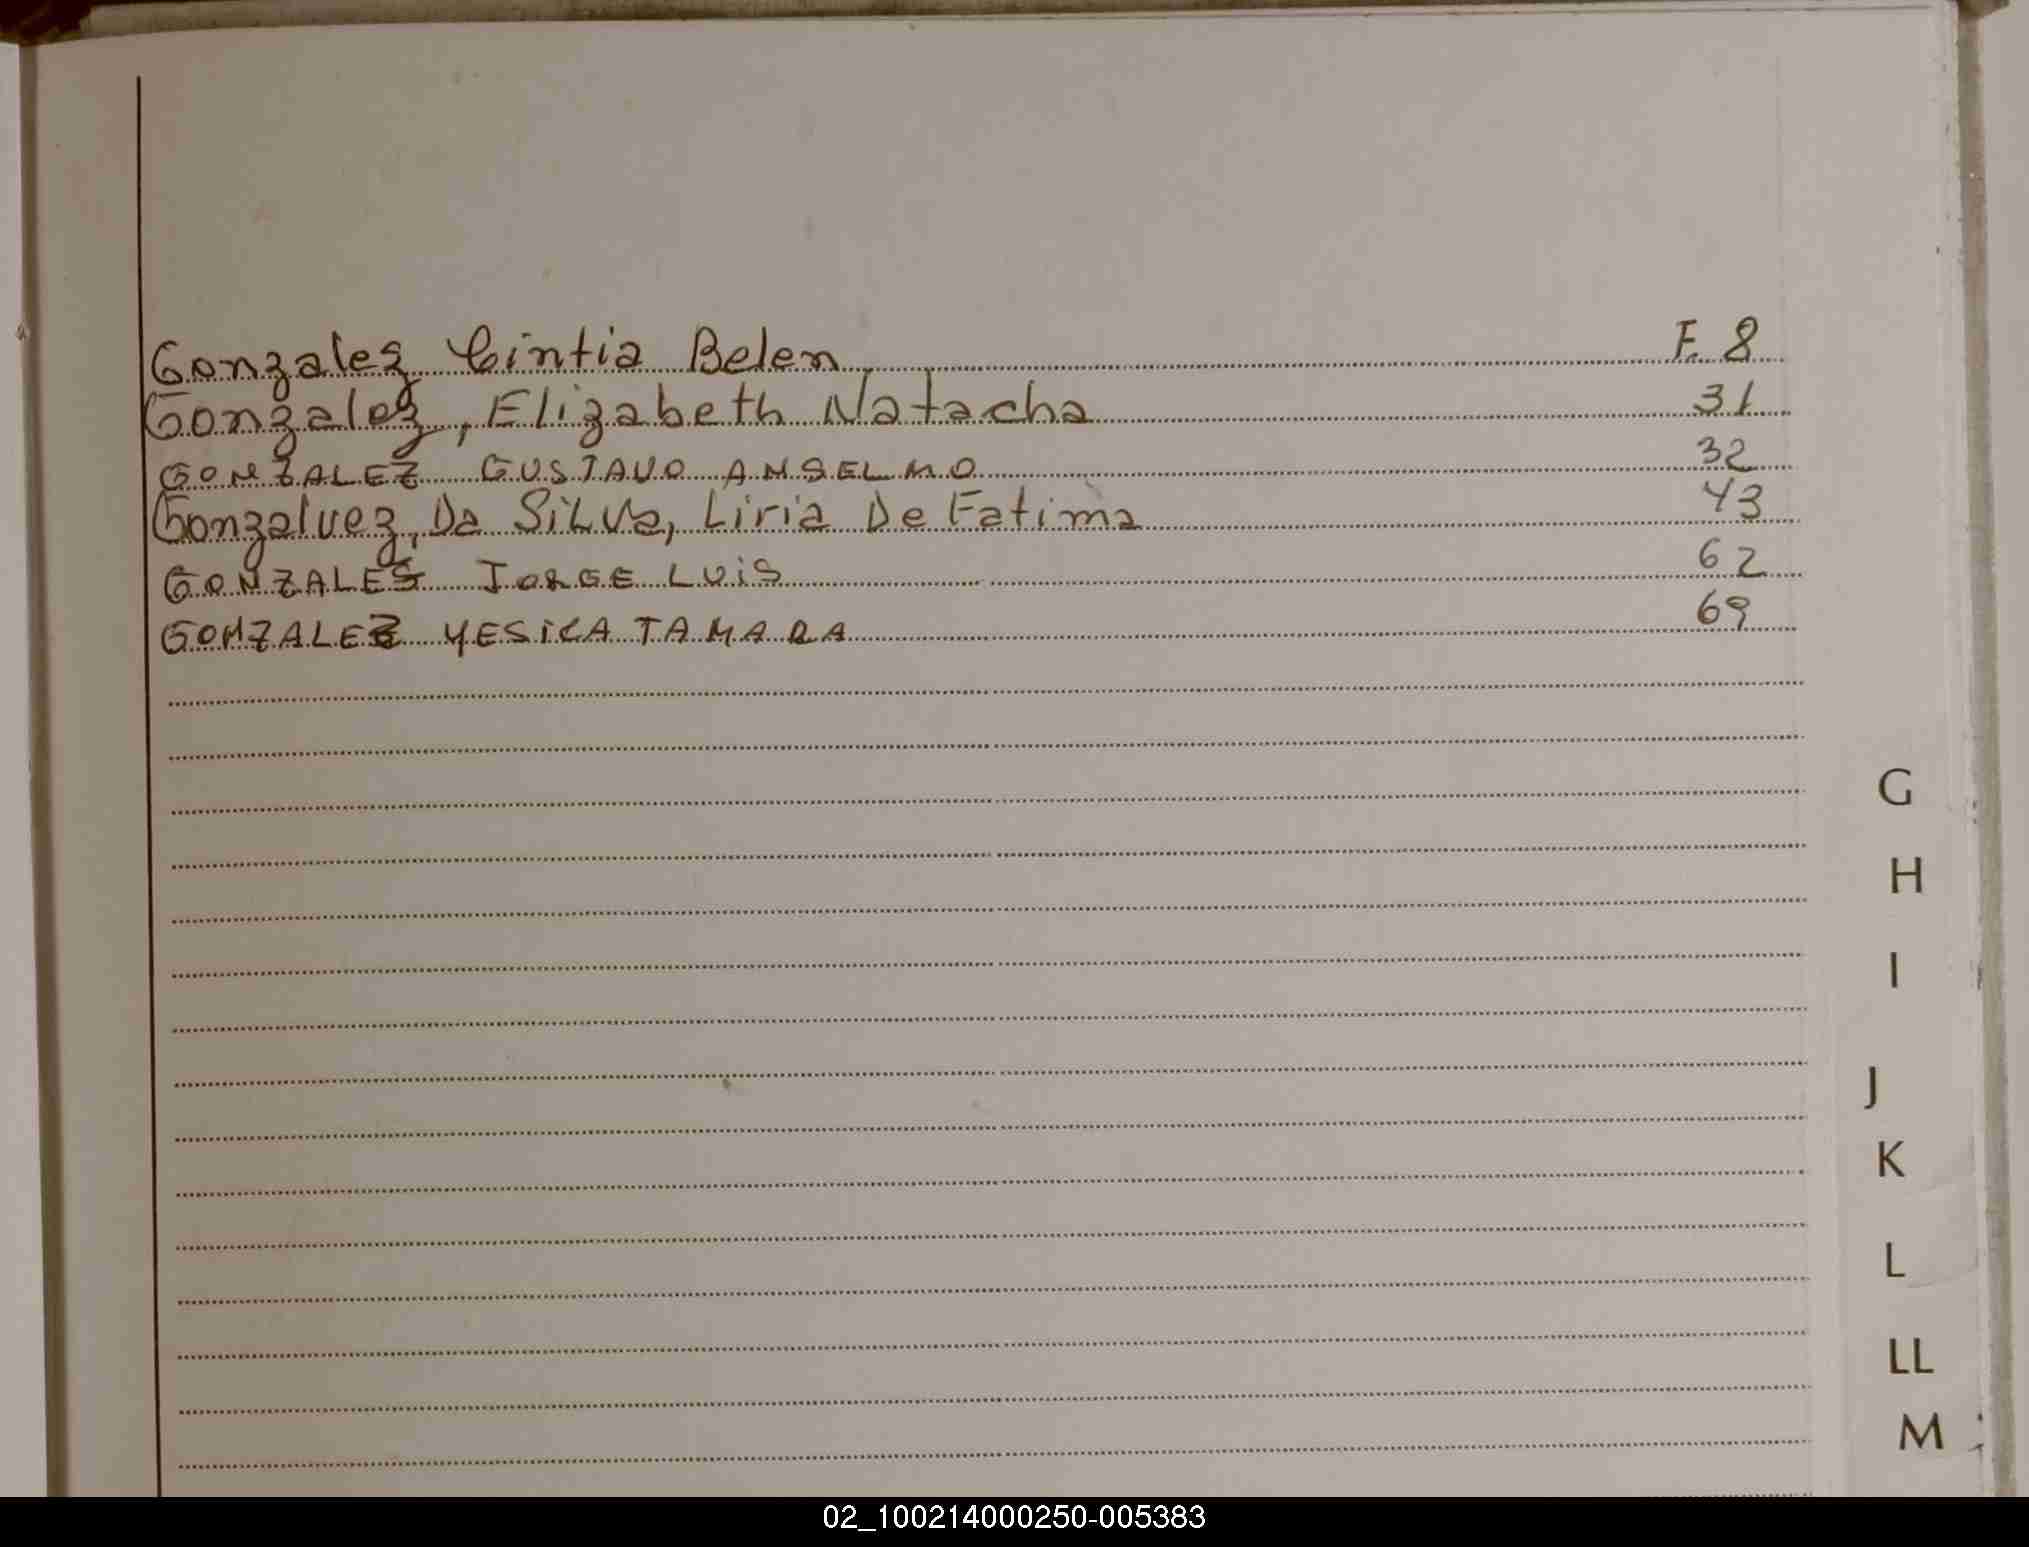 Gonzalez Cintia Belen F. 8
Gonzalez, Elizabeth Natacha 31
GONZALEZ GUSTAVO ANSELMO 32
Gonzalvez, Da SiLVa, Liria De Fatima 43
GONZALES JORGE LUiS 62
GONZALEZ YESiCA TAMARA 69
G
H
I
J
K
L
LL
M
02_100214000250-005383